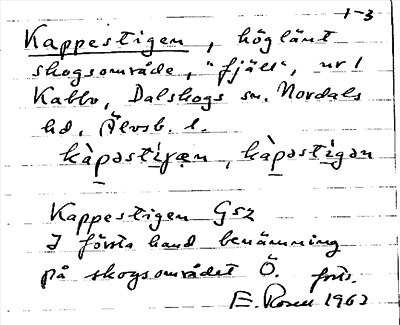 1-3
Kappestigen, höglänt
skogsområde, "fjäll", nr 1
Kabbo, Dalskogs sn. Nordals
hd, Älvsb. l.
kàpəstìgæn, kàpəstigən
Kappestigen GSZ
I första hand benämning
på skogsområdet Ö. forts.
E. Rosen 1962